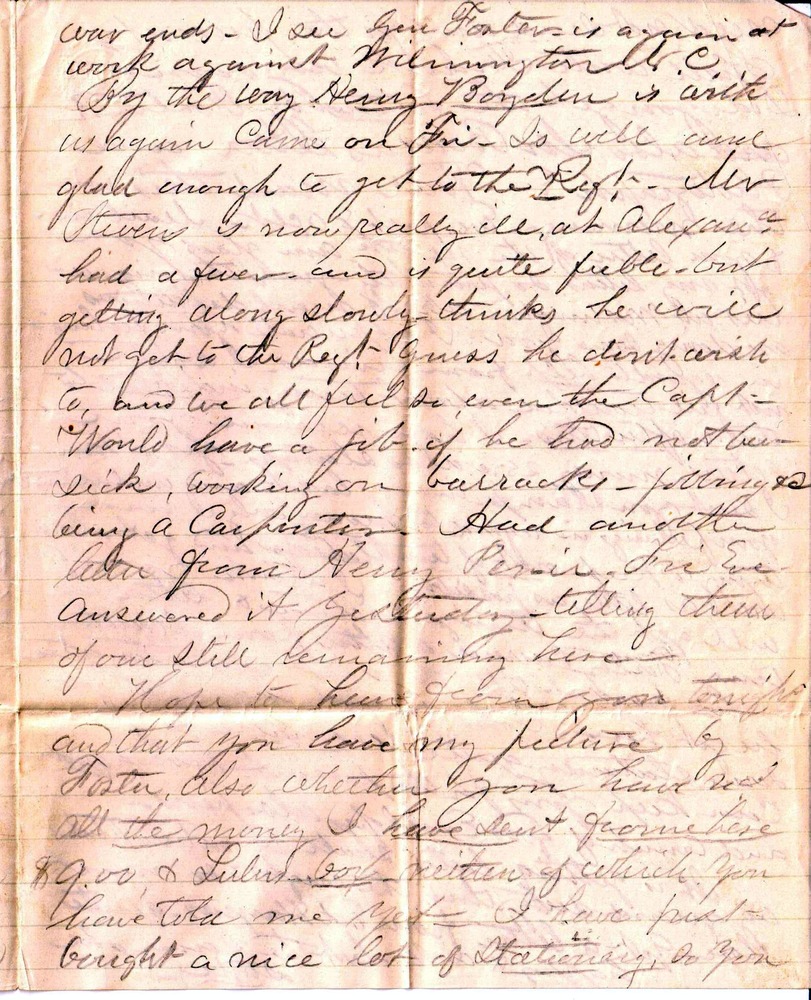 war ends - I see Gen Foster is again at
work against Wilmington N. C.
By the way Henry Boyden is with
us again Came on Fri - Is well and
glad enough to get to the Regt. - Mr
Stevens is now really ill, at Alexan
had a fever - and is quite feeble - but
getting along slowly - thinks he will
not get to the Regt. Guess he don't wish
to, and we all feel so, even the Capt -
Would have a job if he had not been
sick, working on barracks - jobbing &
being a Carpenter. Had another
letter from Henry Fri Eve -
answered it yesterday - telling them
of our still remaining here -
Hope to hear from you tonight
and that you have my picture by
Foster, also whether you have recd
all the money I have sent from here
$9.00, & Lulus box neither of which you
have told me yet - I have just
bought a nice lot of Stationery, so you